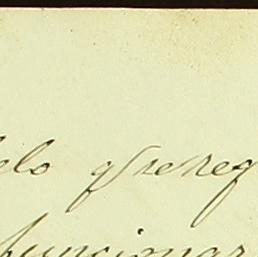 elo q̃ se reg
funcionar